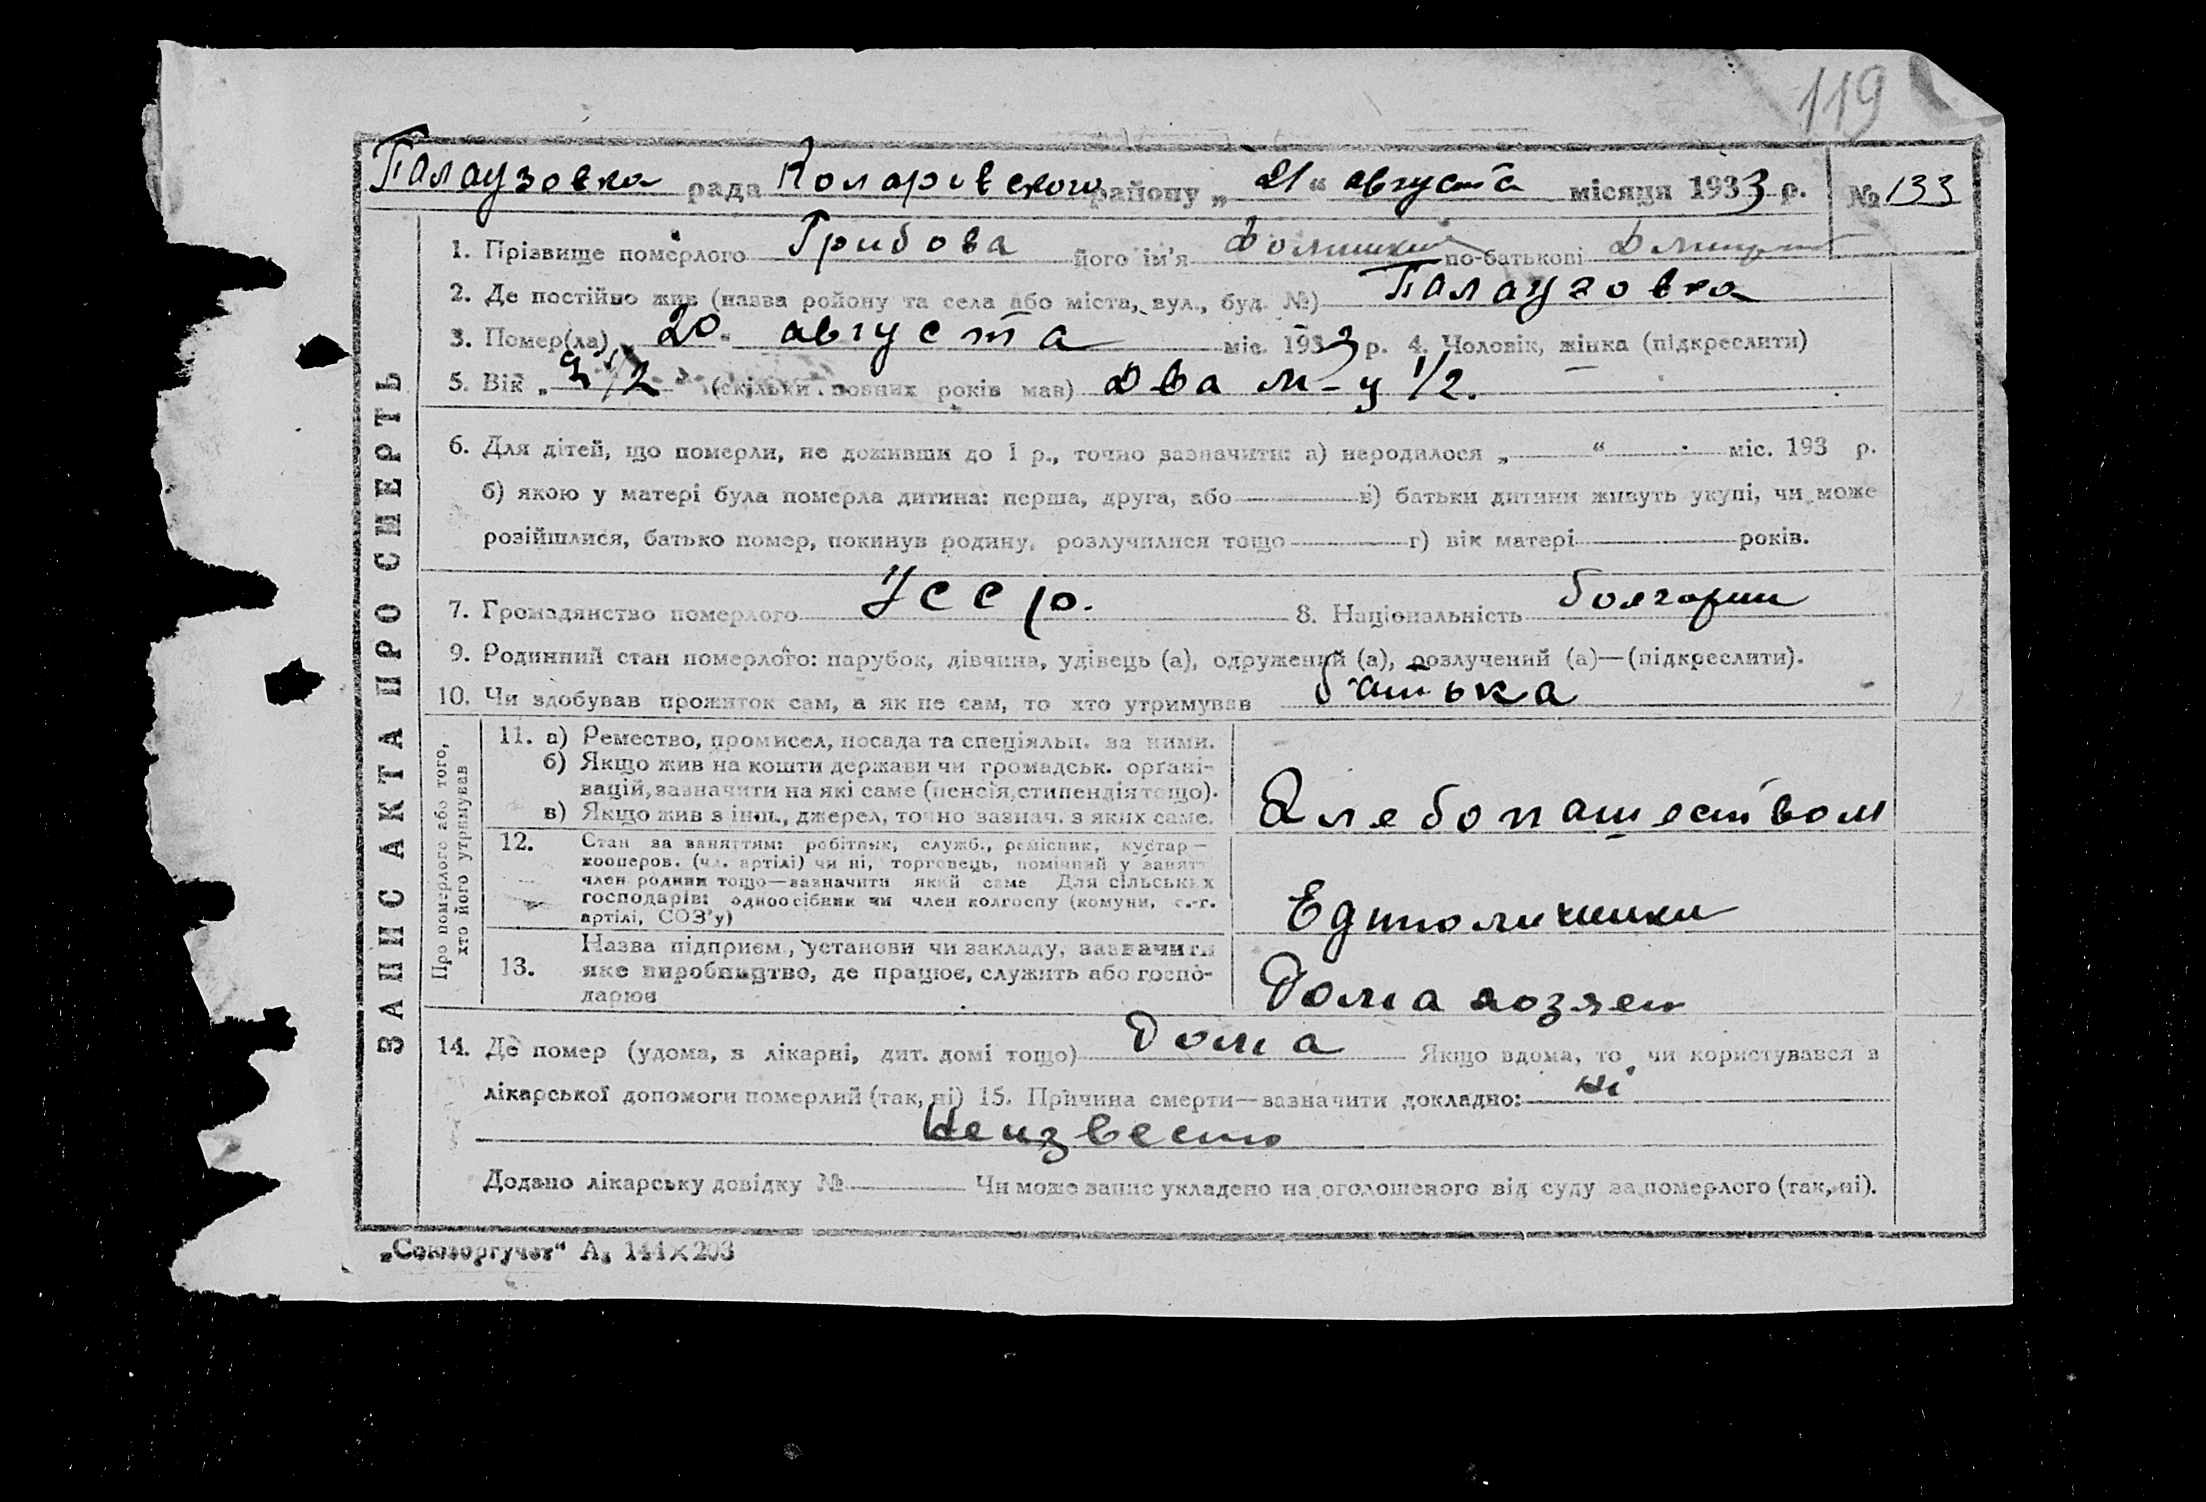 119
Палаузовка рада Коларівского району „ 21 “ августа місяця 1933 р. № 133
1. Прізвище померлого Грибова його ім'я по-батькові
2. Де постійно жив (назва району та села або міста, вул., буд. №) Палаузовка
3. Помер(ла) „ 20 “ августа міс. 1933 р. 4. Чоловік, жінка (підкреслити)
5. Вік „ 2 1/2 (скільки повних років мав) Два м-ц 1/2.
6. Для дітей, що померли, не доживши до 1 р., точно зазначити: а) народилося „ “ міс. 193 р.
б) якою у матері була померла дитина: перша, друга, або в) батьки дитини живуть укупі, чи може
розійшлися, батько помер, покинув родину, розлучилися тощо г) вік матері років.
7. Громадянство померлого УССР. 8. Національність болгарин
9. Родинний стан померлого: парубок, дівчина, удівець (а), одружений (а), розлучений (а)—(підкреслити).
10. Чи здобував прожиток сам, а як не сам, то хто утримував батька
ЗАПИС АКТА ПРО СМЕРТЬ
Про померлого або того, хто його утримував
11. а) Ремество, промисел, посада та спеціяльн. за ними.
б) Якщо жив на кошти держави чи громадськ. органі-
зацій, зазначити на які саме (пенсія, стипендія тощо).
в) Якщо жив з інш., джерел, точно зазнач. з яких саме.
Хлебопашеством
12. Стан за заняттям: робітник, служб., ремісник, кустар—
кооперов. (чл. артілі) чи ні, торговець, помічний у занятті
член родини тощо—зазначити який саме Для сільських
господарів: одноосібник чи член колгоспу (комуни, с.-г.
артілі, СОЗ'у)
Единоличники
13. Назва підприєм., установи чи закладу, зазначити
яке виробництво, де працює, служить або госпо-
дарює
Дома хозяен
14. Де помер (удома, в лікарні, дит. домі тощо) Дома Якщо вдома, то чи користувався з
лікарської допомоги померлий (так, ні) 15. Причина смерти—зазначити докладно: ні
Неизвестно
Додано лікарську довідку № Чи може запис укладено на оголошеного від суду за померлого (так, ні).
„Союзоргучет“ А₅ 144×203